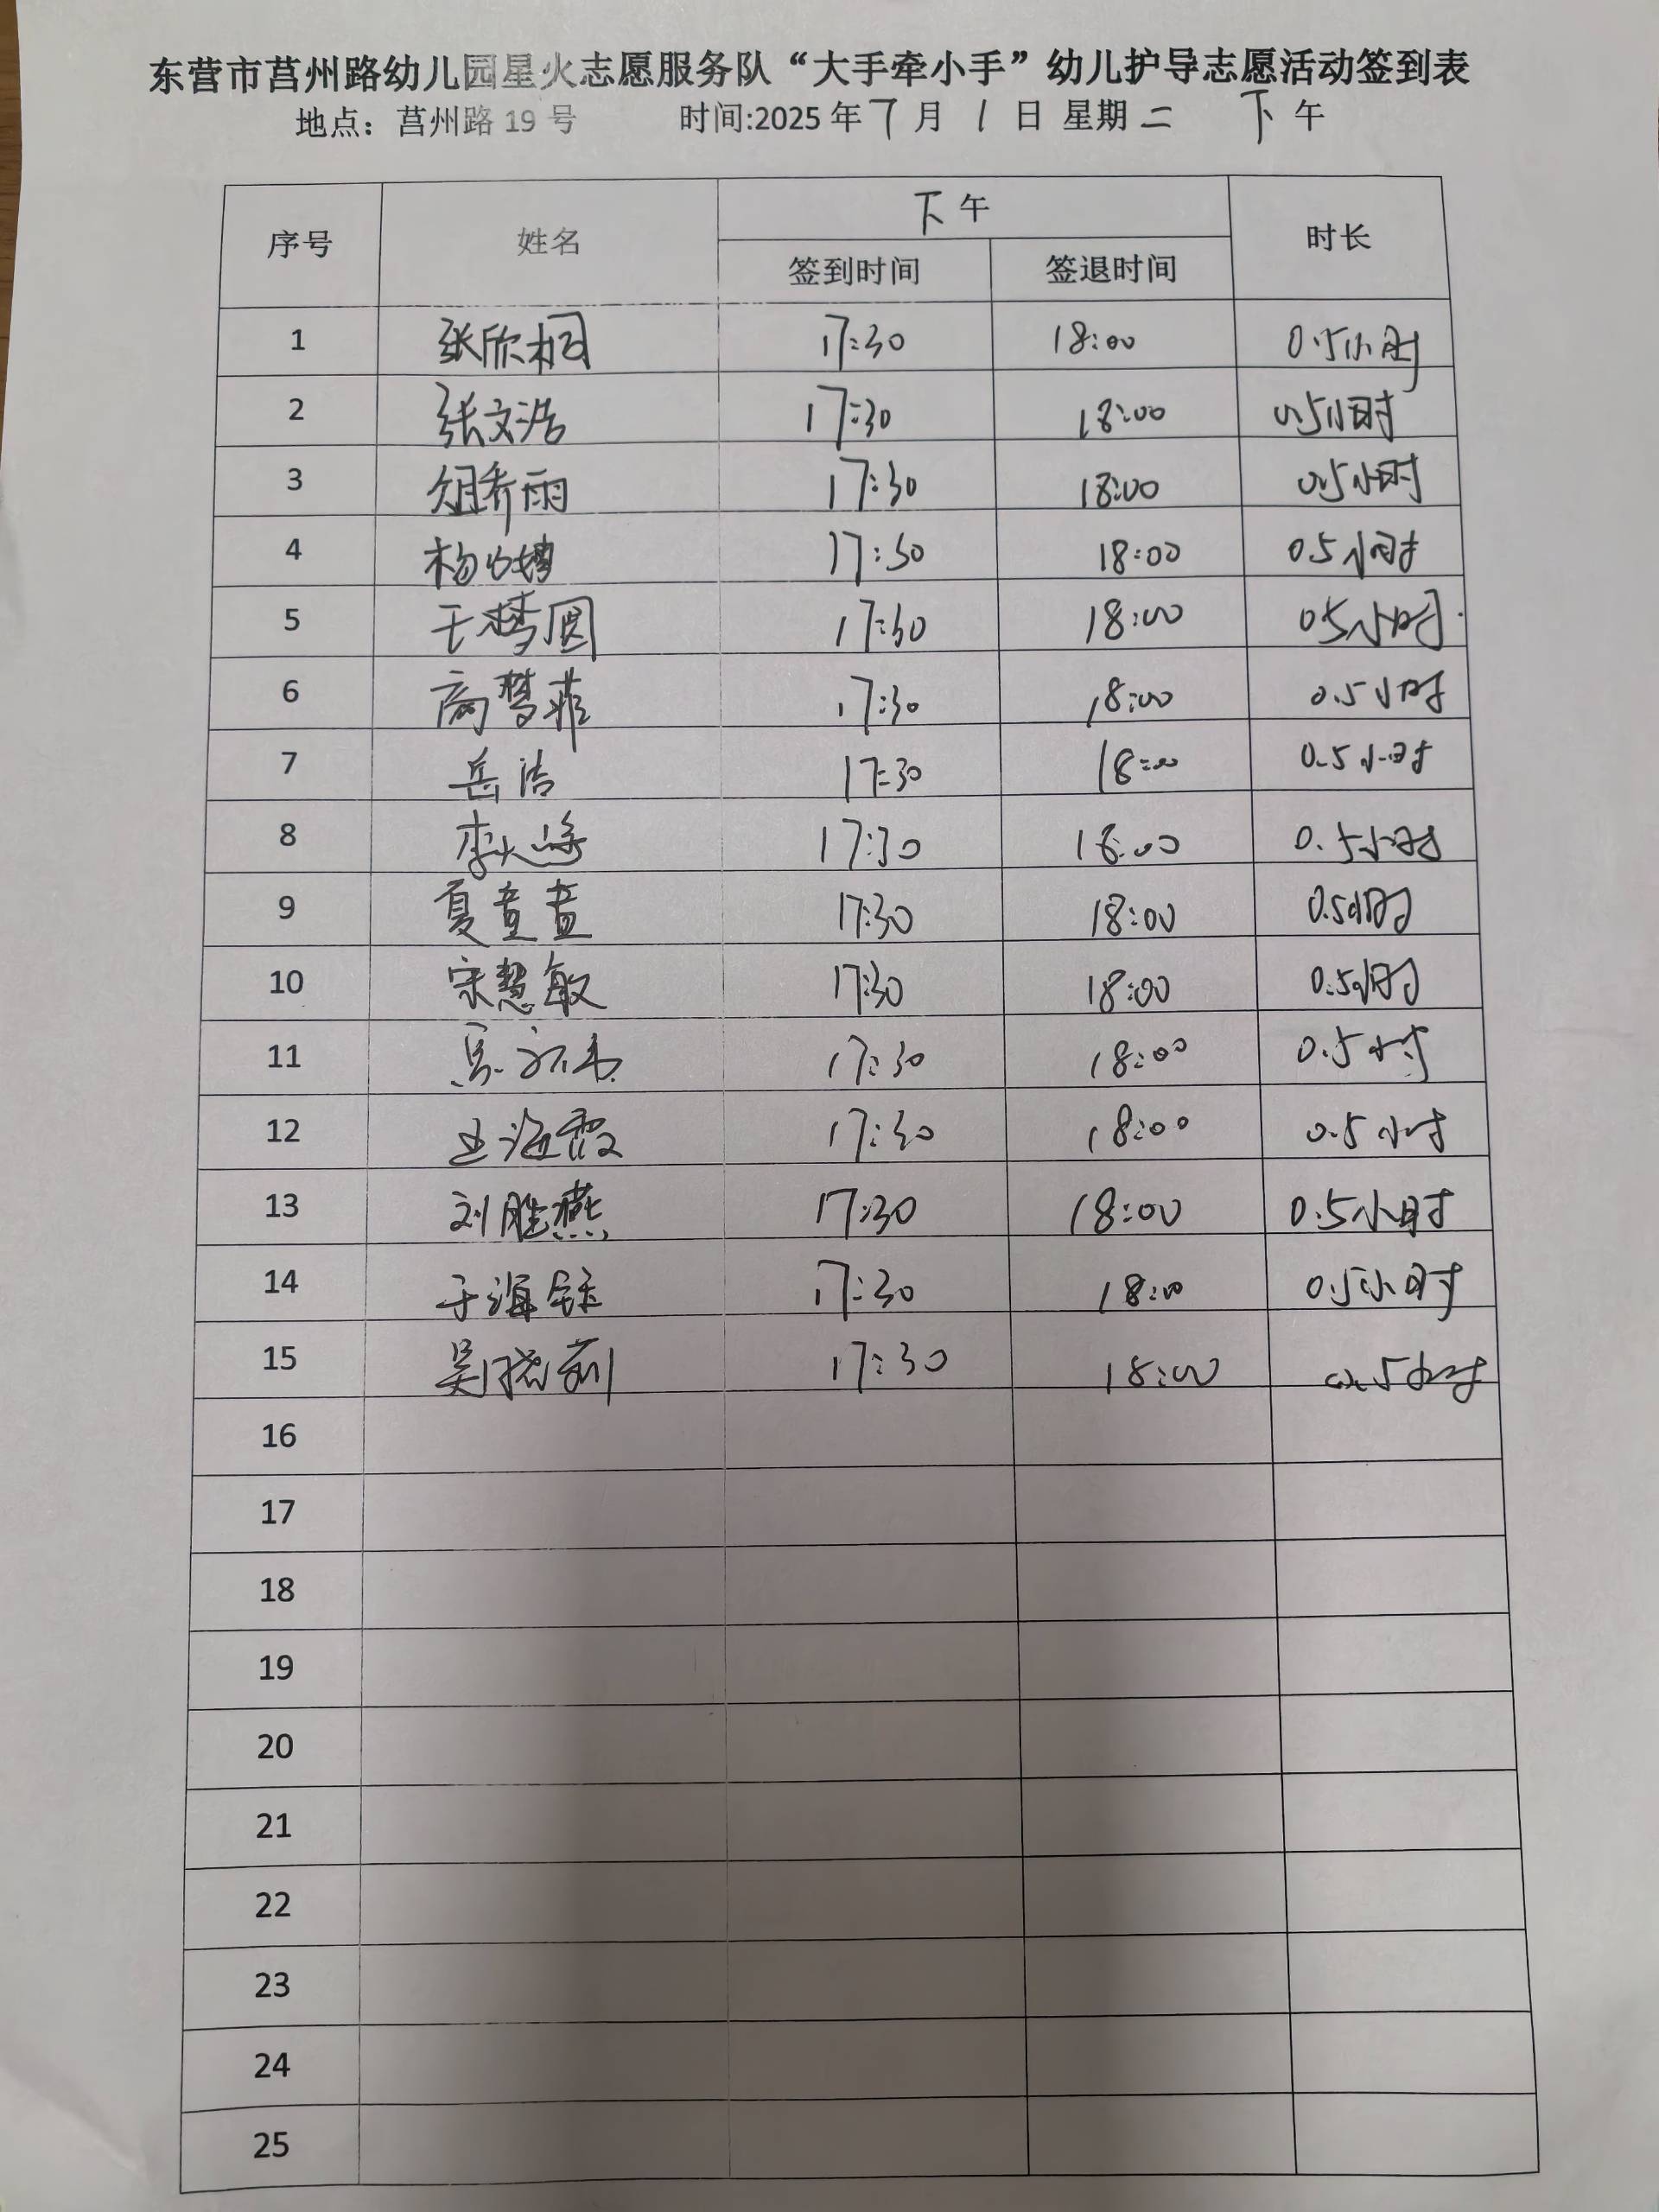 东营市莒州路幼儿园星火志愿服务队“大手牵小手”幼儿护导志愿活动签到表
地点：莒州路 19 号 时间:2025 年 7 月 1 日 星期 二 下 午
序号 姓名 下 午 时长
签到时间 签退时间
1 张欣桐 17:30 18:00 0.5小时
2 张文浩 17:30 18:00 0.5小时
3 乔雨 17:30 18:00 0.5小时
4 杨 17:30 18:00 0.5小时
5 梦圆 17:30 18:00 0.5小时
6 高梦菲 17:30 18:00 0.5小时
7 岳洁 17:30 18:00 0.5小时
8 李 17:30 18:00 0.5小时
9 夏童童 17:30 18:00 0.5小时
10 宋慧敏 17:30 18:00 0.5小时
11 17:30 18:00 0.5小时
12 王海霞 17:30 18:00 0.5小时
13 刘胜燕 17:30 18:00 0.5小时
14 于海 17:30 18:00 0.5小时
15 吴晓莉 17:30 18:00 0.5小时
16
17
18
19
20
21
22
23
24
25